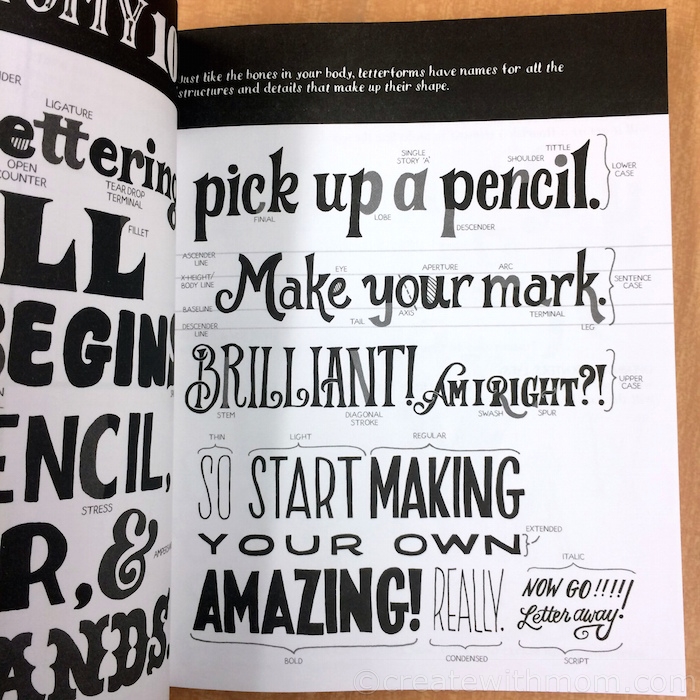 OMY 10
LIGATURE
ettering
OPEN
COUNTER
TEAR DROP
TERMINAL
FILLET
LL
EGINS
ENCIL,
STRESS
R, &
ANDS.
Just like the bones in your body, letterforms have names for all the
structures and details that make up their shape.
SINGLE
STORY 'A'
TITTLE
SHOULDER
pick up a pencil.
LOWER
CASE
FINIAL
LOBE
DESCENDER
ASCENDER
LINE
X-HEIGHT/
BODY LINE
BASELINE
DESCENDER
LINE
EYE
APERTURE
ARC
Make your mark.
SENTENCE
CASE
TAIL
AXIS
TERMINAL
LEG
BRILLIANT! AM I RIGHT?!
UPPER
CASE
STEM
DIAGONAL
STROKE
SWASH
SPUR
THIN
LIGHT
REGULAR
SO START MAKING
YOUR OWN
EXTENDED
AMAZING! REALLY.
ITALIC
NOW GO!!!!!
Letter away!
BOLD
CONDENSED
SCRIPT
©createwithmom.com